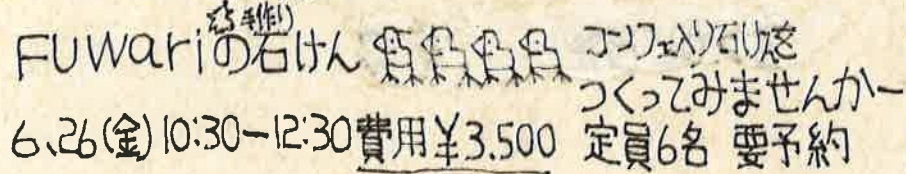 手作り
FUWariの石けん
コンフェ入り石けんを
つくってみませんかー
6、26(金)10:30-12:30 費用¥3.500 定員6名 要予約